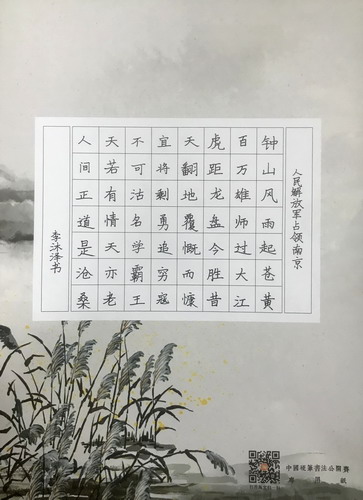 人民解放军占领南京
钟山风雨起苍黄
百万雄师过大江
虎距龙盘今胜昔
天翻地覆慨而慷
宜将剩勇追穷寇
不可沽名学霸王
天若有情天亦老
人间正道是沧桑
李沐泽书
中國硬筆書法公開賽
專用紙